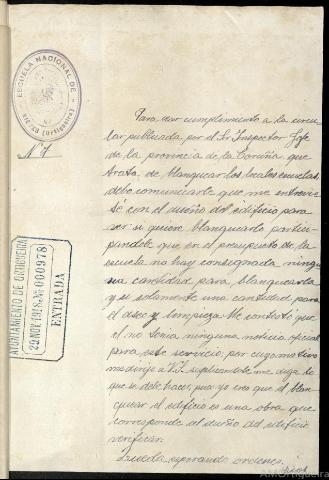 ESCUELA NACIONAL DE
(Ortigueira)
Nº 7
Para dar cumplimiento a la circu
lar publicada por el Sr Inspector Jefe
de la provincia de la Coruña que
trata de blanquear los locales escuelas
debo comunicarle que me entrevis
té con el dueño del edificio para
ver si quiere blanquearlo partici
pandole que en el presupuesto de la
escuela no hay consignada ningu
na cantidad para, blanquearla
y si solamente una cantidad para
el aseo y limpieza Me contestó que
el no tenia ninguna noticia oficial
para este servicio; por cuyo motivo
me dirijo a V.S. suplicandole me diga lo
que se debe hacer, pues yo creo que el blan
quear el edificio es una obra que
corresponde al dueño del edificio
verificar.
Queda esperando ordenes
AYUNTAMIENTO DE ORTIGUEIRA
29 NOV. 1918 Nº 000978
ENTRADA
AMOrtigueira